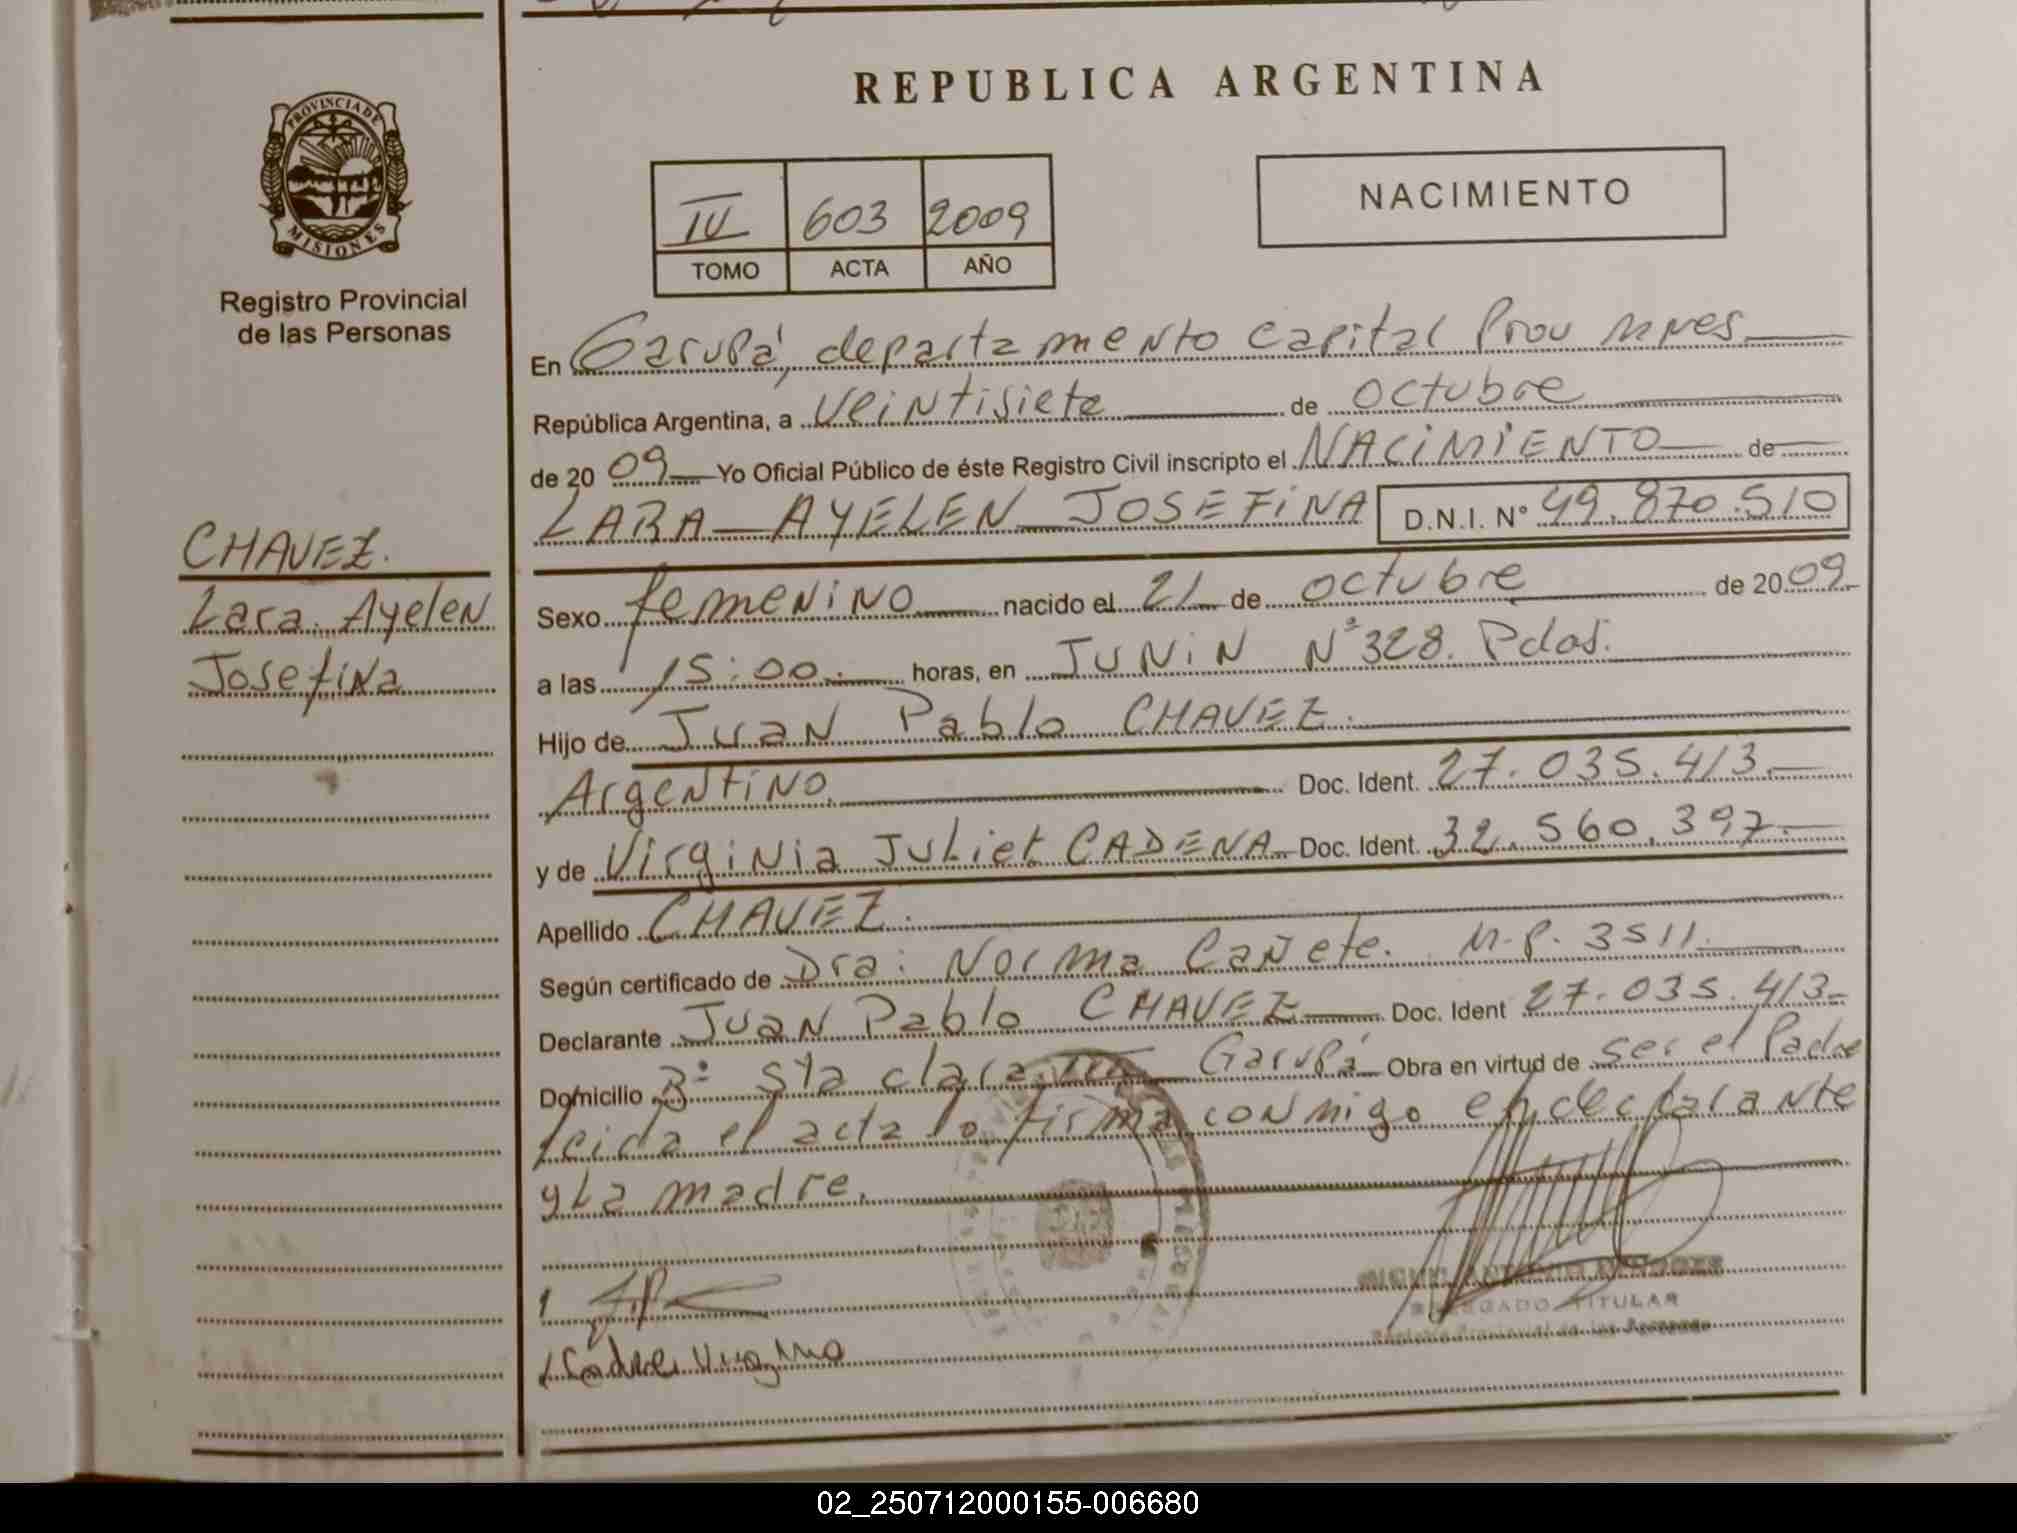 REPUBLICA ARGENTINA
PROVINCIA DE
MISIONES
Registro Provincial
de las Personas
IV 603 2009
TOMO ACTA AÑO
NACIMIENTO
En Garupá, departamento Capital Prov Mnes
República Argentina, a veintisiete de octubre
de 20 09 Yo Oficial Público de éste Registro Civil inscripto el NACIMIENTO de
LARA AYELEN JOSEFINA D.N.I. N° 49.870.510
CHAVEZ.
Lara Ayelen
Josefina
Sexo femenino nacido el 21 de octubre de 20 09
a las 15:00 horas, en JUNIN N° 328. Pdas.
Hijo de Juan Pablo CHAVEZ.
Argentino. Doc. Ident. 27.035.413.
y de Virginia Juliet CADENA Doc. Ident. 32.560.397.
Apellido CHAVEZ.
Según certificado de Dra: Norma Cañete. M.P. 3511.
Declarante Juan Pablo CHAVEZ Doc. Ident 27.035.413
Domicilio B° Sta clara III Garupá Obra en virtud de ser el Padre
leida el acta la firma conmigo el declarante
y La madre.
DELEGADO TITULAR
Registro Provincial de las Personas
02_250712000155-006680